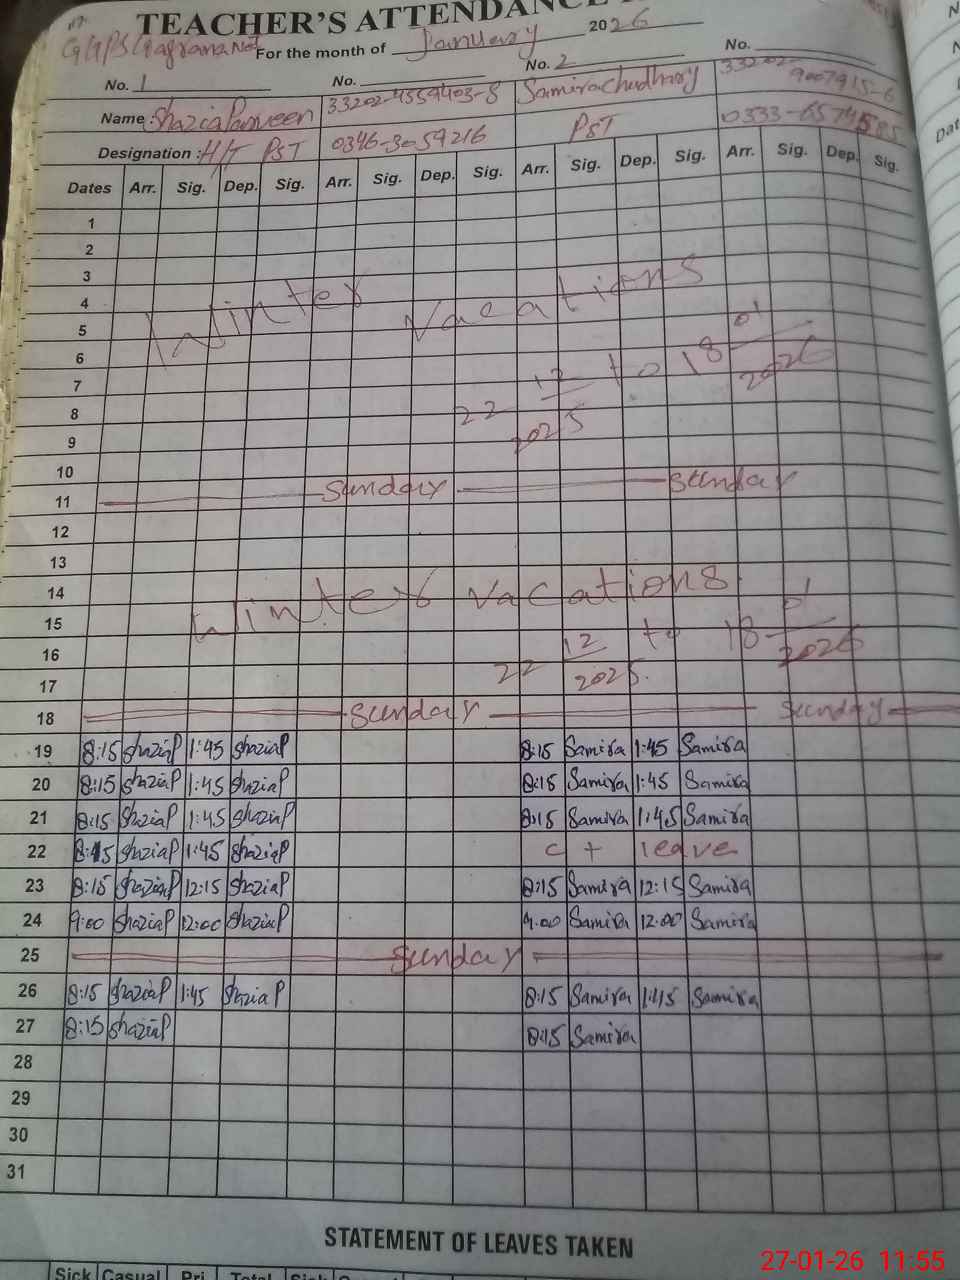 TEACHER'S ATTENDANCE
GGPS Gagrana No1 For the month of January 2026
No. 1 No. No. 2 No.
Name : Shazia Parveen 33202-4559403-8 Samira Chudhary 33202-
Designation : H/T PST 0346-3059216 PST 0333-
Dates Arr. Sig. Dep. Sig. Arr. Sig. Dep. Sig. Arr. Sig. Dep. Sig. Arr. Sig. Dep. Sig.
1
2
3
4 Winter Vacations
5
6 22 12/2025 to 18 01/2026
7
8
9
10
11 Sunday Sunday
12
13
14 Winter Vacations
15
16 22 12/2025 to 18 01/2026
17
18 Sunday Sunday
19 8:15 ShaziaP 1:45 ShaziaP 8:15 Samira 1:45 Samira
20 8:15 ShaziaP 1:45 ShaziaP 8:15 Samira 1:45 Samira
21 8:15 ShaziaP 1:45 ShaziaP 8:15 Samira 1:45 Samira
22 8:15 ShaziaP 1:45 ShaziaP C + leave
23 8:15 ShaziaP 12:15 ShaziaP 8:15 Samira 12:15 Samira
24 9:00 ShaziaP 12:00 ShaziaP 9:00 Samira 12:00 Samira
25 Sunday
26 8:15 ShaziaP 1:45 ShaziaP 8:15 Samira 1:45 Samira
27 8:15 ShaziaP 8:15 Samira
28
29
30
31
STATEMENT OF LEAVES TAKEN
Sick Casual Pri Total Sick
27-01-26 11:55